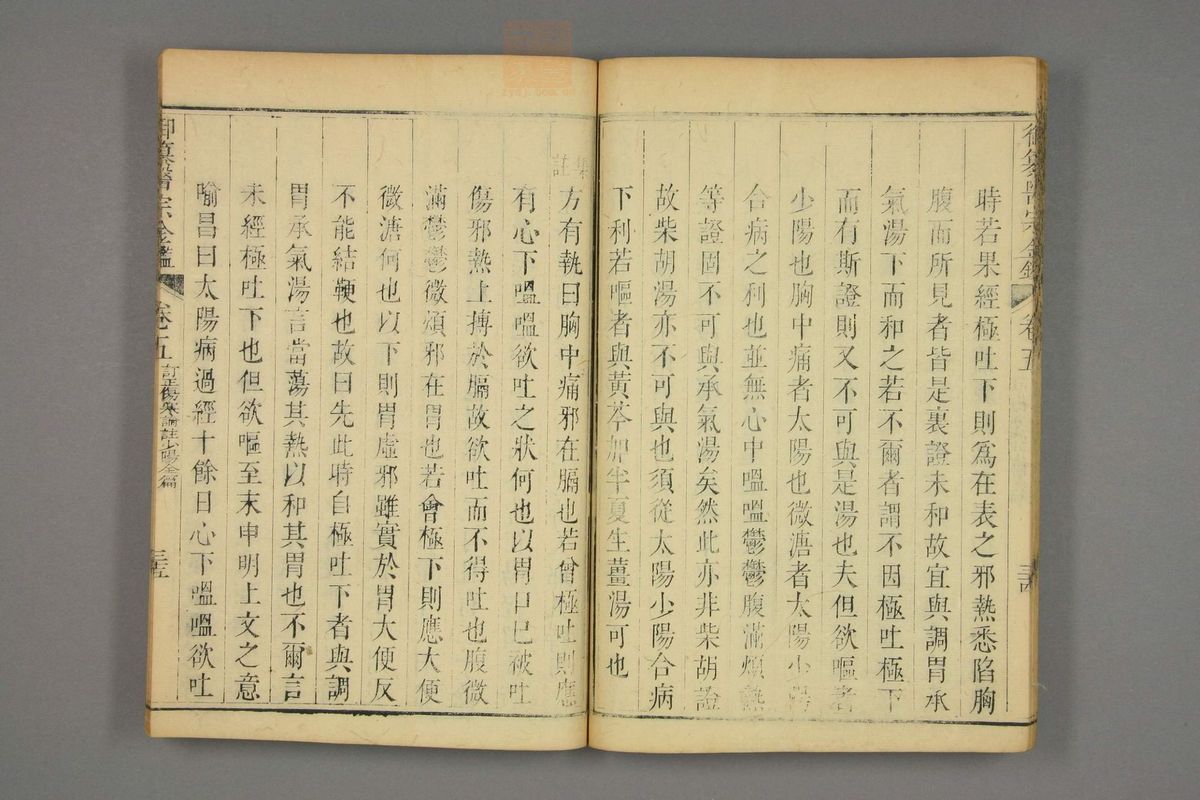 時若果經極吐下則爲在表之邪熱悉陷胸
腹而所見者皆是裏證未和故宜與調胃承
氣湯下而和之若不爾者謂不因極吐極下
而有斯證則又不可與是湯也夫但欲嘔者
少陽也胸中痛者太陽也微溏者太陽少陽
合病之利也並無心中嗢嗢鬱鬱腹滿煩熱
等證固不可與承氣湯矣然此亦非柴胡證
故柴胡湯亦不可與也須從太陽少陽合病
下利若嘔者與黃芩加半夏生薑湯可也
御纂醫宗金鑑 卷五
三四
集註
方有執曰胸中痛邪在膈也若曾極吐則應
有心下嗢嗢欲吐之狀何也以胃口已被吐
傷邪熱上搏於膈故欲吐而不得吐也腹微
滿鬱鬱微煩邪在胃也若曾極下則應大便
微溏何也以下則胃虛邪雖實於胃大便反
不能結鞕也故曰先此時自極吐下者與調
胃承氣湯言當蕩其熱以和其胃也不爾言
未經極吐下也但欲嘔至末申明上文之意
喻昌曰太陽病過經十餘日心下嗢嗢欲吐
御纂醫宗金鑑 卷五 訂正傷寒論註少陽全篇
三五